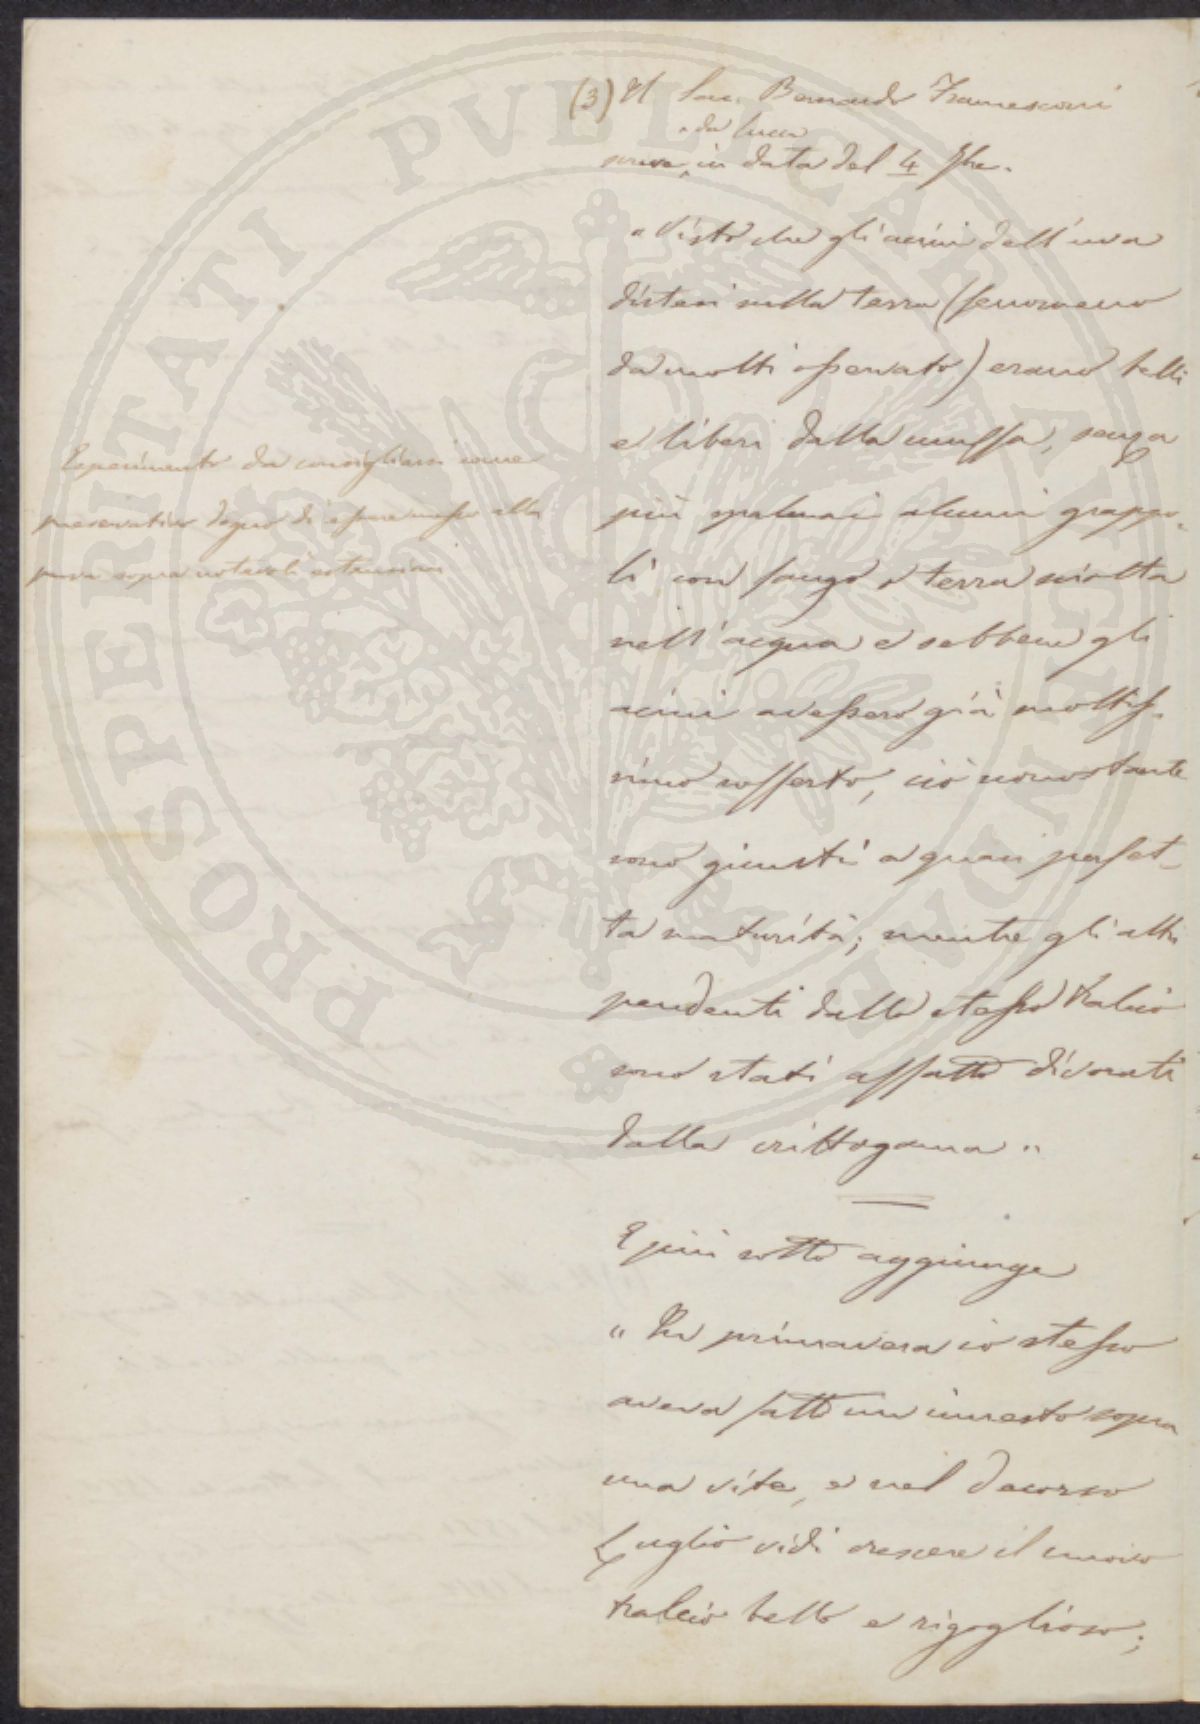 (3) Il Sac. Bernardo Francesconi
da Lucca
scrive, in data del 4 7bre.
"Visto che gli acini dell'uva
distesi sulla terra (fenomeno
da molti osservato) erano belli
e liberi dalla muffa, senza
più spalmai alcuni grappo-
li con fango o terra sciolta
nell'acqua e sebbene gli
acini avessero già moltis-
simo sofferto, ciò nonostante
sono giunti a quasi perfet-
ta maturità; mentre gli altri
pendenti dallo stesso tralcio
sono stati affatto divorati
dalla crittogama"
E più sotto aggiunge
"In primavera io stesso
aveva fatto un innesto sopra
una vite, e nel decorso
Luglio vidi crescere il nuovo
tralcio bello e rigoglioso;
Esperimento da consigliarsi come
preservativo degno di essere messo alla
prova sopra notevoli estensioni
PROSPERITATI PUBLICAE AUGENDAE